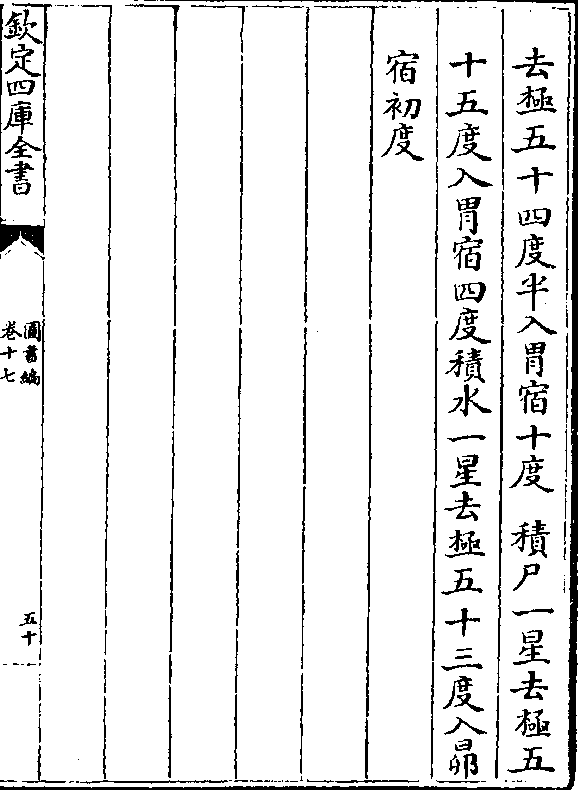 去極五十四度半入胃宿十度　積尸一星去極五
十五度入胃宿四度積水一星去極五十三度入昴
宿初度
欽定四庫全書
圖書編
卷十七
五十